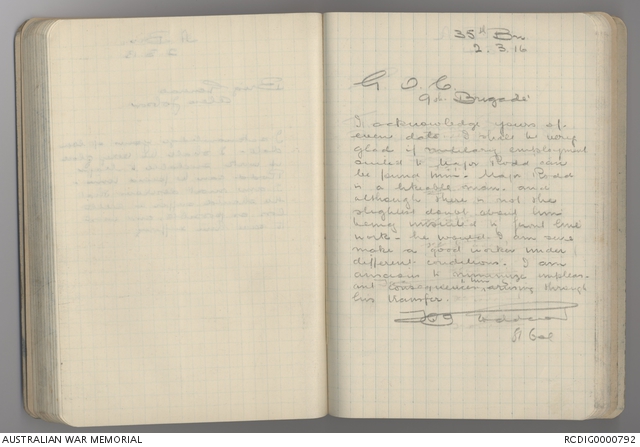 35th Bn
2.3.16
G O C
9th Brigade
I acknowledge yours of
even date. I shall be very
glad if military employment
suited to Major Rodd can
be found him. Major Rodd
is a likeable man and
although there is not the
slightest doubt about him
being unsuited to front line
work - he would I am sure
make a good worker under
different conditions. I am
anxious to minimise unpleas-
ant consequences, to him arising through
his transfer.
Lt Col
AUSTRALIAN WAR MEMORIAL
RCDIG0000792